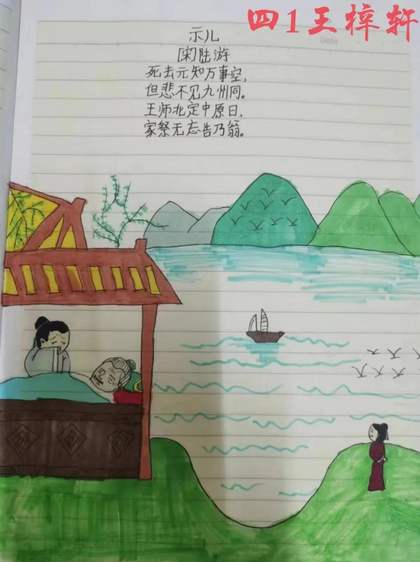 四1王梓轩
示儿
[宋]陆游
死去元知万事空，
但悲不见九州同。
王师北定中原日，
家祭无忘告乃翁。